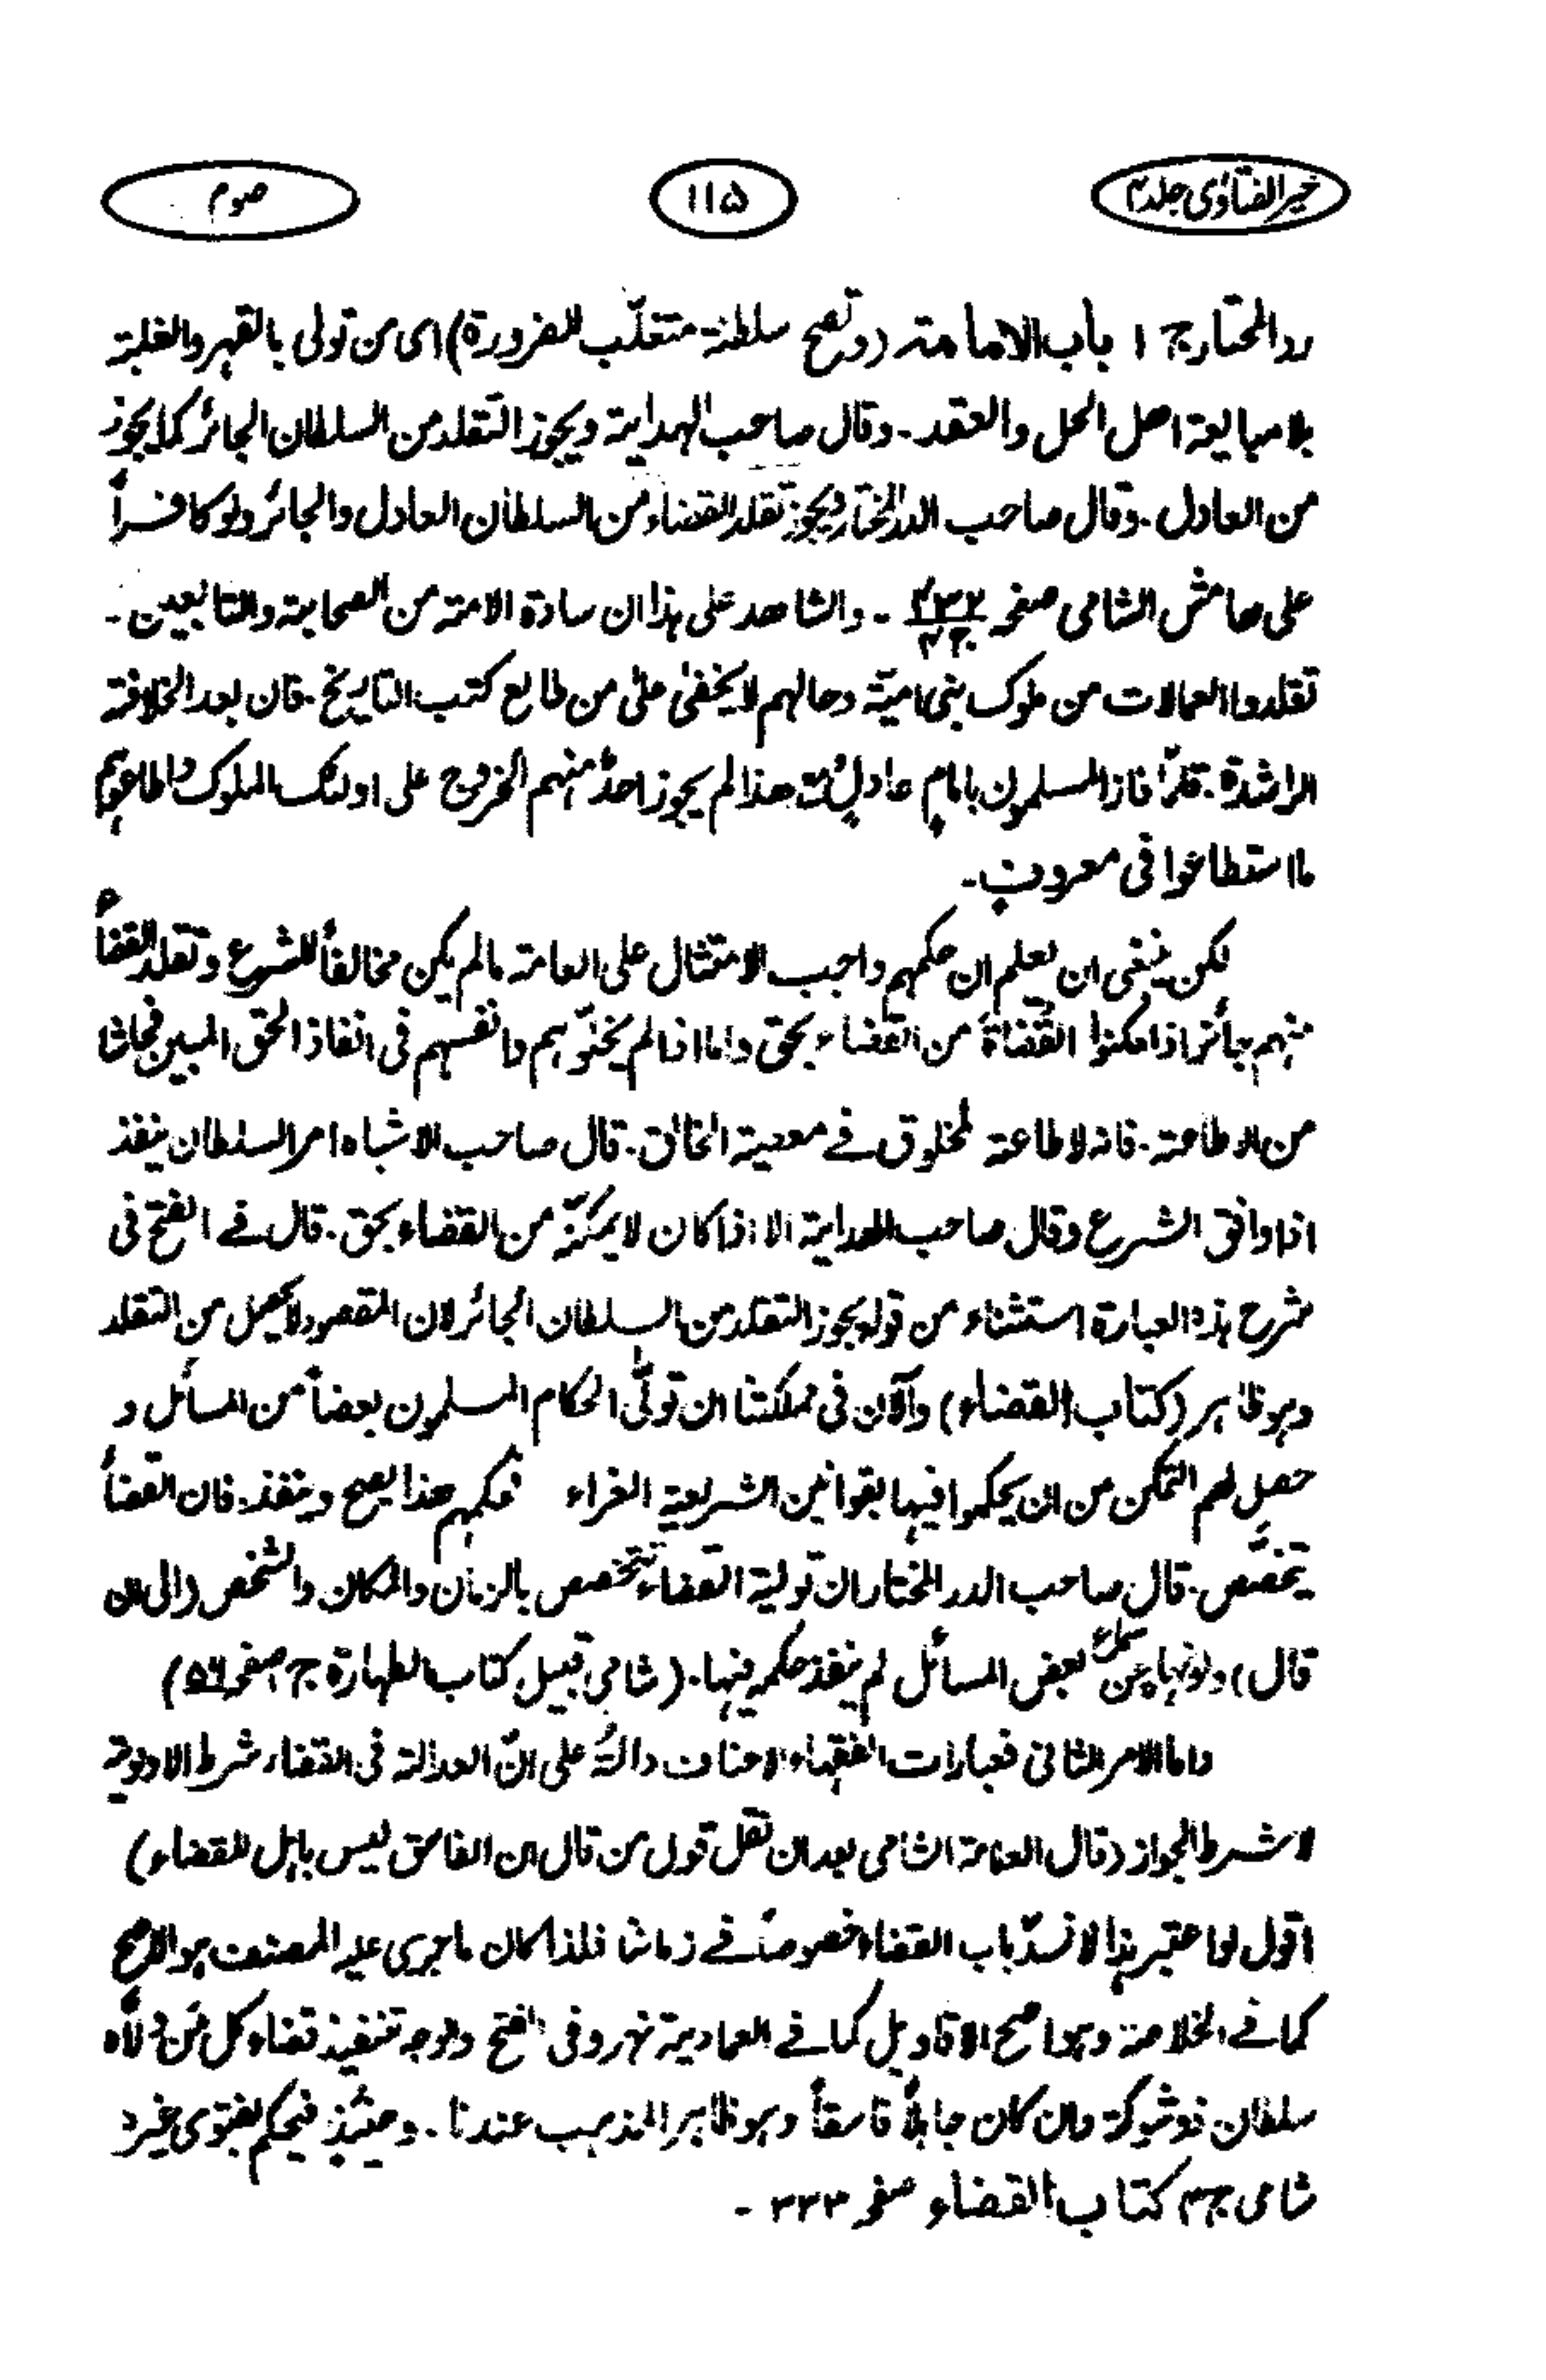 خیر الفتاوٰی جلد ۴
۱۱۵
صوم
رد المحتار ج ۱ باب الامامة (وتصح سلطنة متغلّب للضرورة) ای من تولی بالقهر والغلبة
بلا مبایعة اهل الحل والعقد۔ وقال صاحب الهدایة ویجوز التقلد من السلطان الجائر کما یجوز
من العادل۔ وقال صاحب الدر المختار ویجوز تقلد القضاء من السلطان العادل والجائر ولو کافراً
علی هامش الشامی صفحہ ۔ والشاهد علی هذا ان سادة الامة من الصحابة والتابعین۔
تقلدوا العمالات من ملوک بنی امیّة وحالهم لا یخفیٰ علیٰ من طالع کتب التاریخ۔ فان بعد الخلافة
الراشدة۔ قلّما فاز المسلمون بامامٍ عادلٍ مع هذا لم یجوز احدٌ منهم الخروج علی اولئک الملوک واطاعوهم
ما استطاعوا فی معروفٍ۔
لکن ینبغی ان یعلم ان حکمهم واجب الامتثال علی العامة مالم یکن مخالفاً للشرع وتقلد القضاءُ
منهم جائز اذا مکنوا القُضَاةَ من القضاء بحق واما اذا لم یخلّوهم وانفسهم فی انفاذ الحق المبین فحاشا
من الاطاعة۔ فانه لا طاعة لمخلوق فے معصیة الخالق۔ قال صاحب الاشباه امر السلطان ینفذ
اذا وافق الشرع وقال صاحب الهدایة الا اذا کان لا یمکنّه من القضاء بحق۔ قال فے الفتح فی
شرح هذه العبارة استثناء من قوله یجوز التقلد من السلطان الجائر لان المقصود لا یحصل من التقلد
وهو ظاهر (کتاب القضاء) وآلان فی مملکتنا ان تولّٰی الحکام المسلمون بعضاً من المسائل و
حصل لهم التمکن من ان یحکموا فیها بقوانین الشریعة الغراء فحکمهم هذا یصح وینفذ۔ فان القضاءُ
یتخصّص۔ قال صاحب الدر المختار ان تولیة القضاء تتخصص بالزمان والمکان والشخص (الی ان
قال) ولو نهاه عن سماع بعض المسائل لم ینفذ حکمه فیها۔ (شامی قبیل کتاب الطهارة ج ۱ صفحہ ۵۶)
واما الامر الثانی فعبارات الفقهاء الاحناف دالةٌ علی انّ العدالة فی القضاء شرط الاولویة
لا شرط الجواز (قال العلامة الشامی بعد ان نقل قول من قال ان الفاسق لیس باهل للقضاء)
اقول لو اعتبر هذا لانسدّ باب القضاء خصوصًا فے زماننا فلذا کان ما جری علیه المصنف هو الاصح
کما فے الخلاصة وهو اصح الاقاویل کما فے العمادیة نهر وفی الفتح والوجه تنفیذ قضاء کل مَن ولّاه
سلطان ذو شوکة وان کان جاهلًا فاسقاً وهو ظاهر المذهب عندنا۔ وحینئذٍ فیحکم بفتوی غیره
شامی ج ۴ کتاب القضاء صفحہ ۳۳۳۔